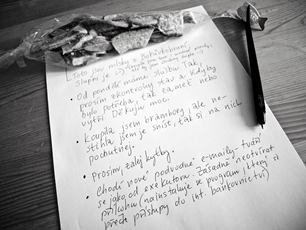 Toto jsou mlsky z
slupni je :)
• Od pondělí máme službu. Tak,
prosím zkontroluj dav a kdyby
bylo potřeba, tak zameť nebo
vytři. Děkuju moc.
• Koupila jsem brambory, ale ne-
stihla jsem je sníst, tak si na nich
pochutnej.
• Prosím, zalej kytky.
• Chodí nové podvodné e-maily - tváří
se jako od exekutora. Zásadně neotvírat
přílohu (nainstaluje se program, který si
přečte přístupy do int. bankovnictví)